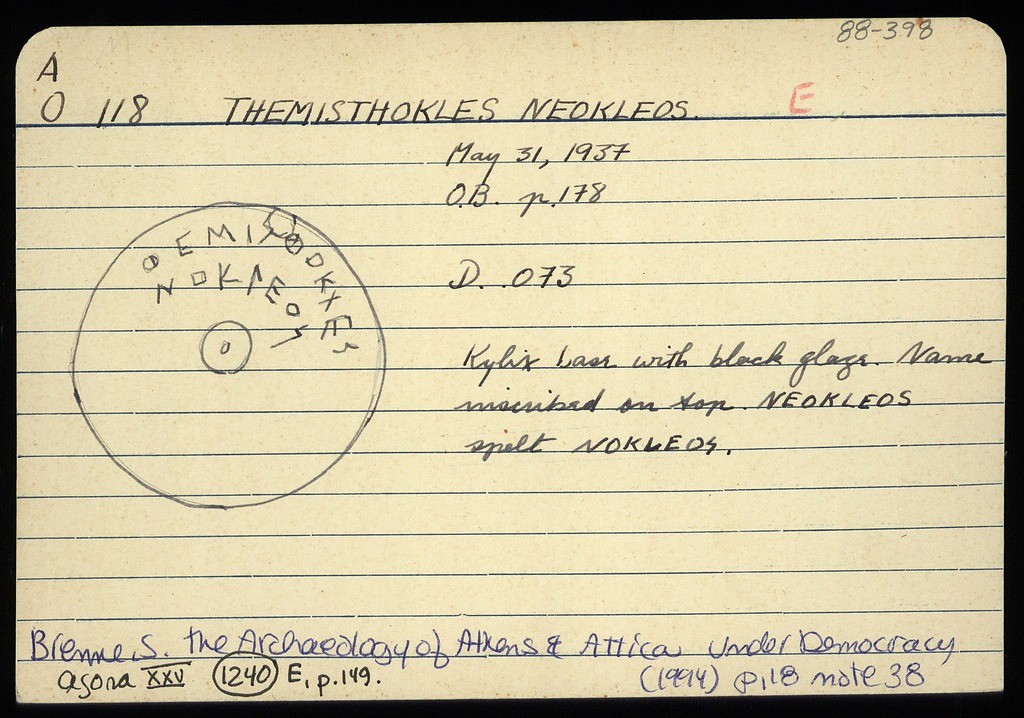 88-398
A
O 118 THEMISTHOKLES NEOKLEOS. E
May 31, 1937
O.B. p.178
ΘEMISΘOKΛES
NOKΛEOS
D. .073
Kylix base with black glaze. Name
inscribed on top. NEOKLEOS
spelt NOKLEOS.
Brenne, S. the Archaeology of Athens & Attica Under Democracy
(1994) p,18 note 38
Agora XXV 1240 E, p.149.